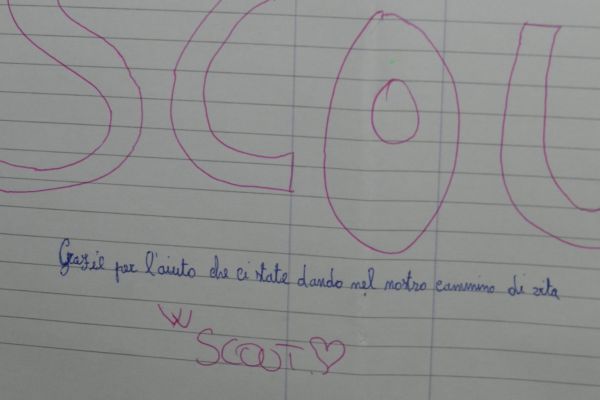 SCOU
Grazie per l'aiuto che ci state dando nel nostro cammino di vita
W
SCOUT